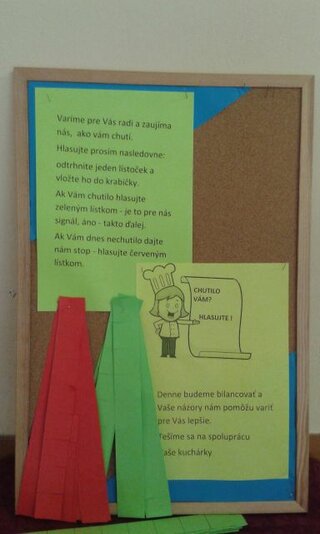 Varíme pre Vás radi a zaujíma
nás, ako vám chutí.
Hlasujte prosím nasledovne:
odtrhnite jeden lístoček a
vložte ho do krabičky.
Ak Vám chutilo hlasujte
zeleným lístkom - je to pre nás
signál, áno - takto ďalej.
Ak Vám dnes nechutilo dajte
nám stop - hlasujte červeným
lístkom.
CHUTILO
VÁM?
HLASUJTE !
Denne budeme bilancovať a
Vaše názory nám pomôžu variť
pre Vás lepšie.
Tešíme sa na spoluprácu
Vaše kuchárky